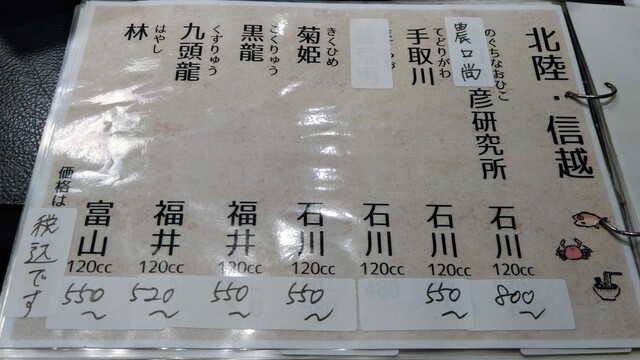 北陸・信越
のぐちなおひこ
農口尚彦研究所
石川
120cc
800~
てどりがわ
手取川
石川
120cc
550~
石川
120cc
きくひめ
菊姫
石川
120cc
550~
こくりゅう
黒龍
福井
120cc
550~
くずりゅう
九頭龍
福井
120cc
520~
はやし
林
富山
120cc
550~
価格は
税込です